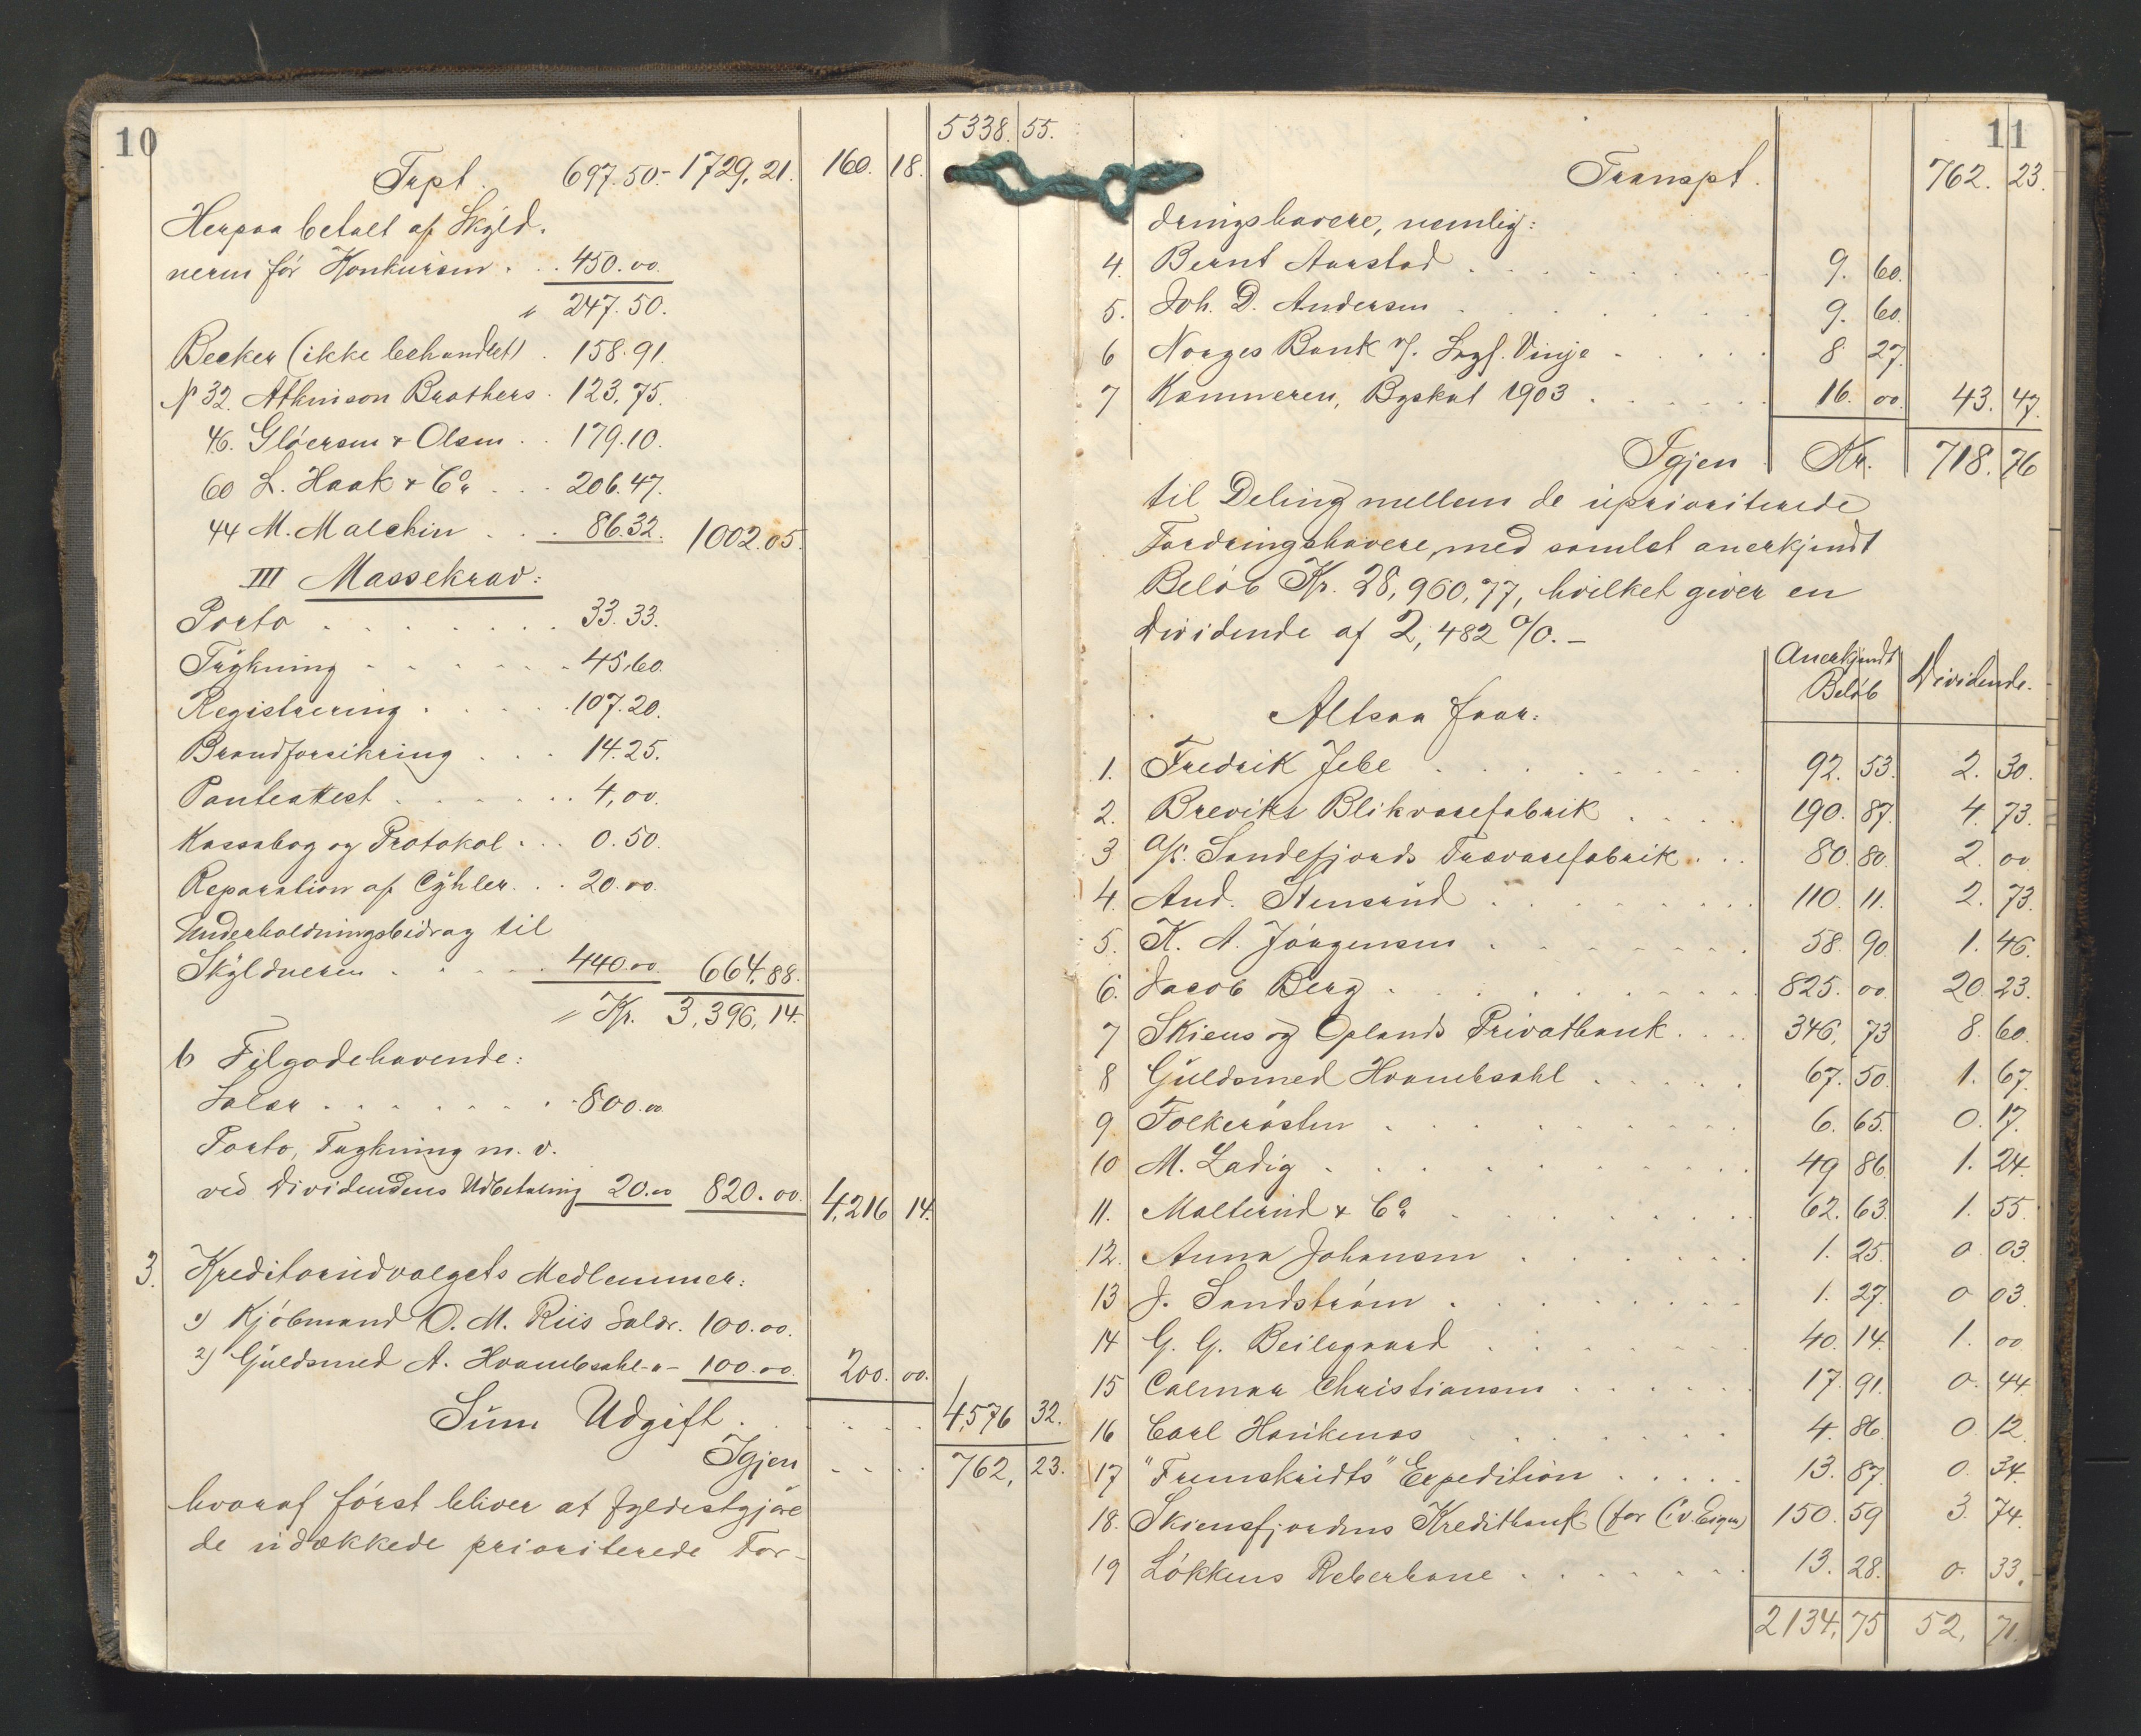 10
5338. 55.
Trpt. 697.50.- 1729,21. 160. 18.
Herpaa betalt af Skyld-
neren før Konkursen . . 450.00.
" 247.50.
Becker (ikke behandlet) . 158.91.
№ 32. Athinson Brothers . 123,75.
46. Gløersen & Olsen . . 179.10.
60 L. Haak & Co. . . . 206.47.
44 M. Malchin . . . 86.32. 1002.05.
III Massekrav:
Porto . . . . . . . 33.33.
Trykning . . . . . . 45.60.
Registrering . . . . . 107.20.
Brandforsikring . . . 14.25.
Panteattest . . . . . . 4,00.
Kassabog og Protokol . . . 0.50.
Reparation af Cykler . . . 20.00.
Underholdningsbidrag til
Skyldneren . . . . . 440.00. 664,88.
" Kr. 3,396,14.
b Tilgodehavende:
Salær . . . . . . . 800.00
Porto, Trykning m. v.
ved Dividendens Udbetaling 20.00 820.00. 4,216 14.
3. Kreditorudvalgets Medlemmer:
1) Kjøbmand O. M. Riis Salær. 100.00.
2) Guldsmed A. Hvambsahl -"- 100.00. 200. 00.
Sum Udgift . . . . . 4,576 32.
Igjen . . . . 762, 23.
hvoraf først bliver at fyldestgjøre
de udækkede prioriterede For-
11
Transpt. 762. 23.
dringshavere, nemlig:
4. Bernt Aarstad . . . . . . . 9. 60.
5. Joh. D. Andersen . . . . . . 9. 60.
6 Norges Bank v/. Sagf. Vinje . . . . . 8. 27.
7 Kæmneren, Byskat 1903 . . . . . 16. 00. 43. 47.
Igjen Kr. 718. 76
til Deling mellem de uprioriterede
Fordringshavere, med samlet anerkjendt
Beløb Kr. 28,960,77, hvilket giver en
Dividende af 2,482 %. –
Anerkjendt Beløb Dividende.
Altsaa faar:
1. Fredrik Jebe . . . . . . . . 92. 53. 2. 30.
2. Breviks Blikvarefabrik . . . . 190. 87. 4. 73.
3 A/S. Sandefjords Trævarefabrik . . . 80. 80. 2. 00
4. And. Stensrud . . . . . . . 110. 11. 2. 73.
5. K. A. Jørgensen . . . . . . . 58. 90. 1. 46.
6. Jacob Berg . . . . . . . . 825. 00. 20. 23.
7 Skiens og Oplands Privatbank . . . . 346, 73 8. 60.
8 Guldsmed Hvambsahl . . . . . 67. 50. 1. 67.
9 Folkerøsten . . . . . . . . 6. 65. 0. 17.
10 M. Ladig . . . . . . . . 49 86. 1. 24.
11. Malterud & Co . . . . . . . 62. 63. 1. 55.
12. Anna Johansen . . . . . . 1. 25. 0 03.
13 J. Sandstrøm . . . . . . . . 1. 27. 0 03.
14 G. G. Beilegaard . . . . . . 40. 14. 1. 00
15 Calmar Christiansen . . . . . . 17. 91. 0. 44.
16 Carl Haukenæs . . . . . . . 4. 86. 0. 12.
17 "Fremskridts" Expedition . . . . . 13. 87. 0. 34.
18. Skiensfjordens Kreditbank (for Civ. Eigen) 150. 59 3. 74.
19 Løkkens Reberbane . . . . . . . 13. 28. 0. 33.
2134, 75 52, 71.